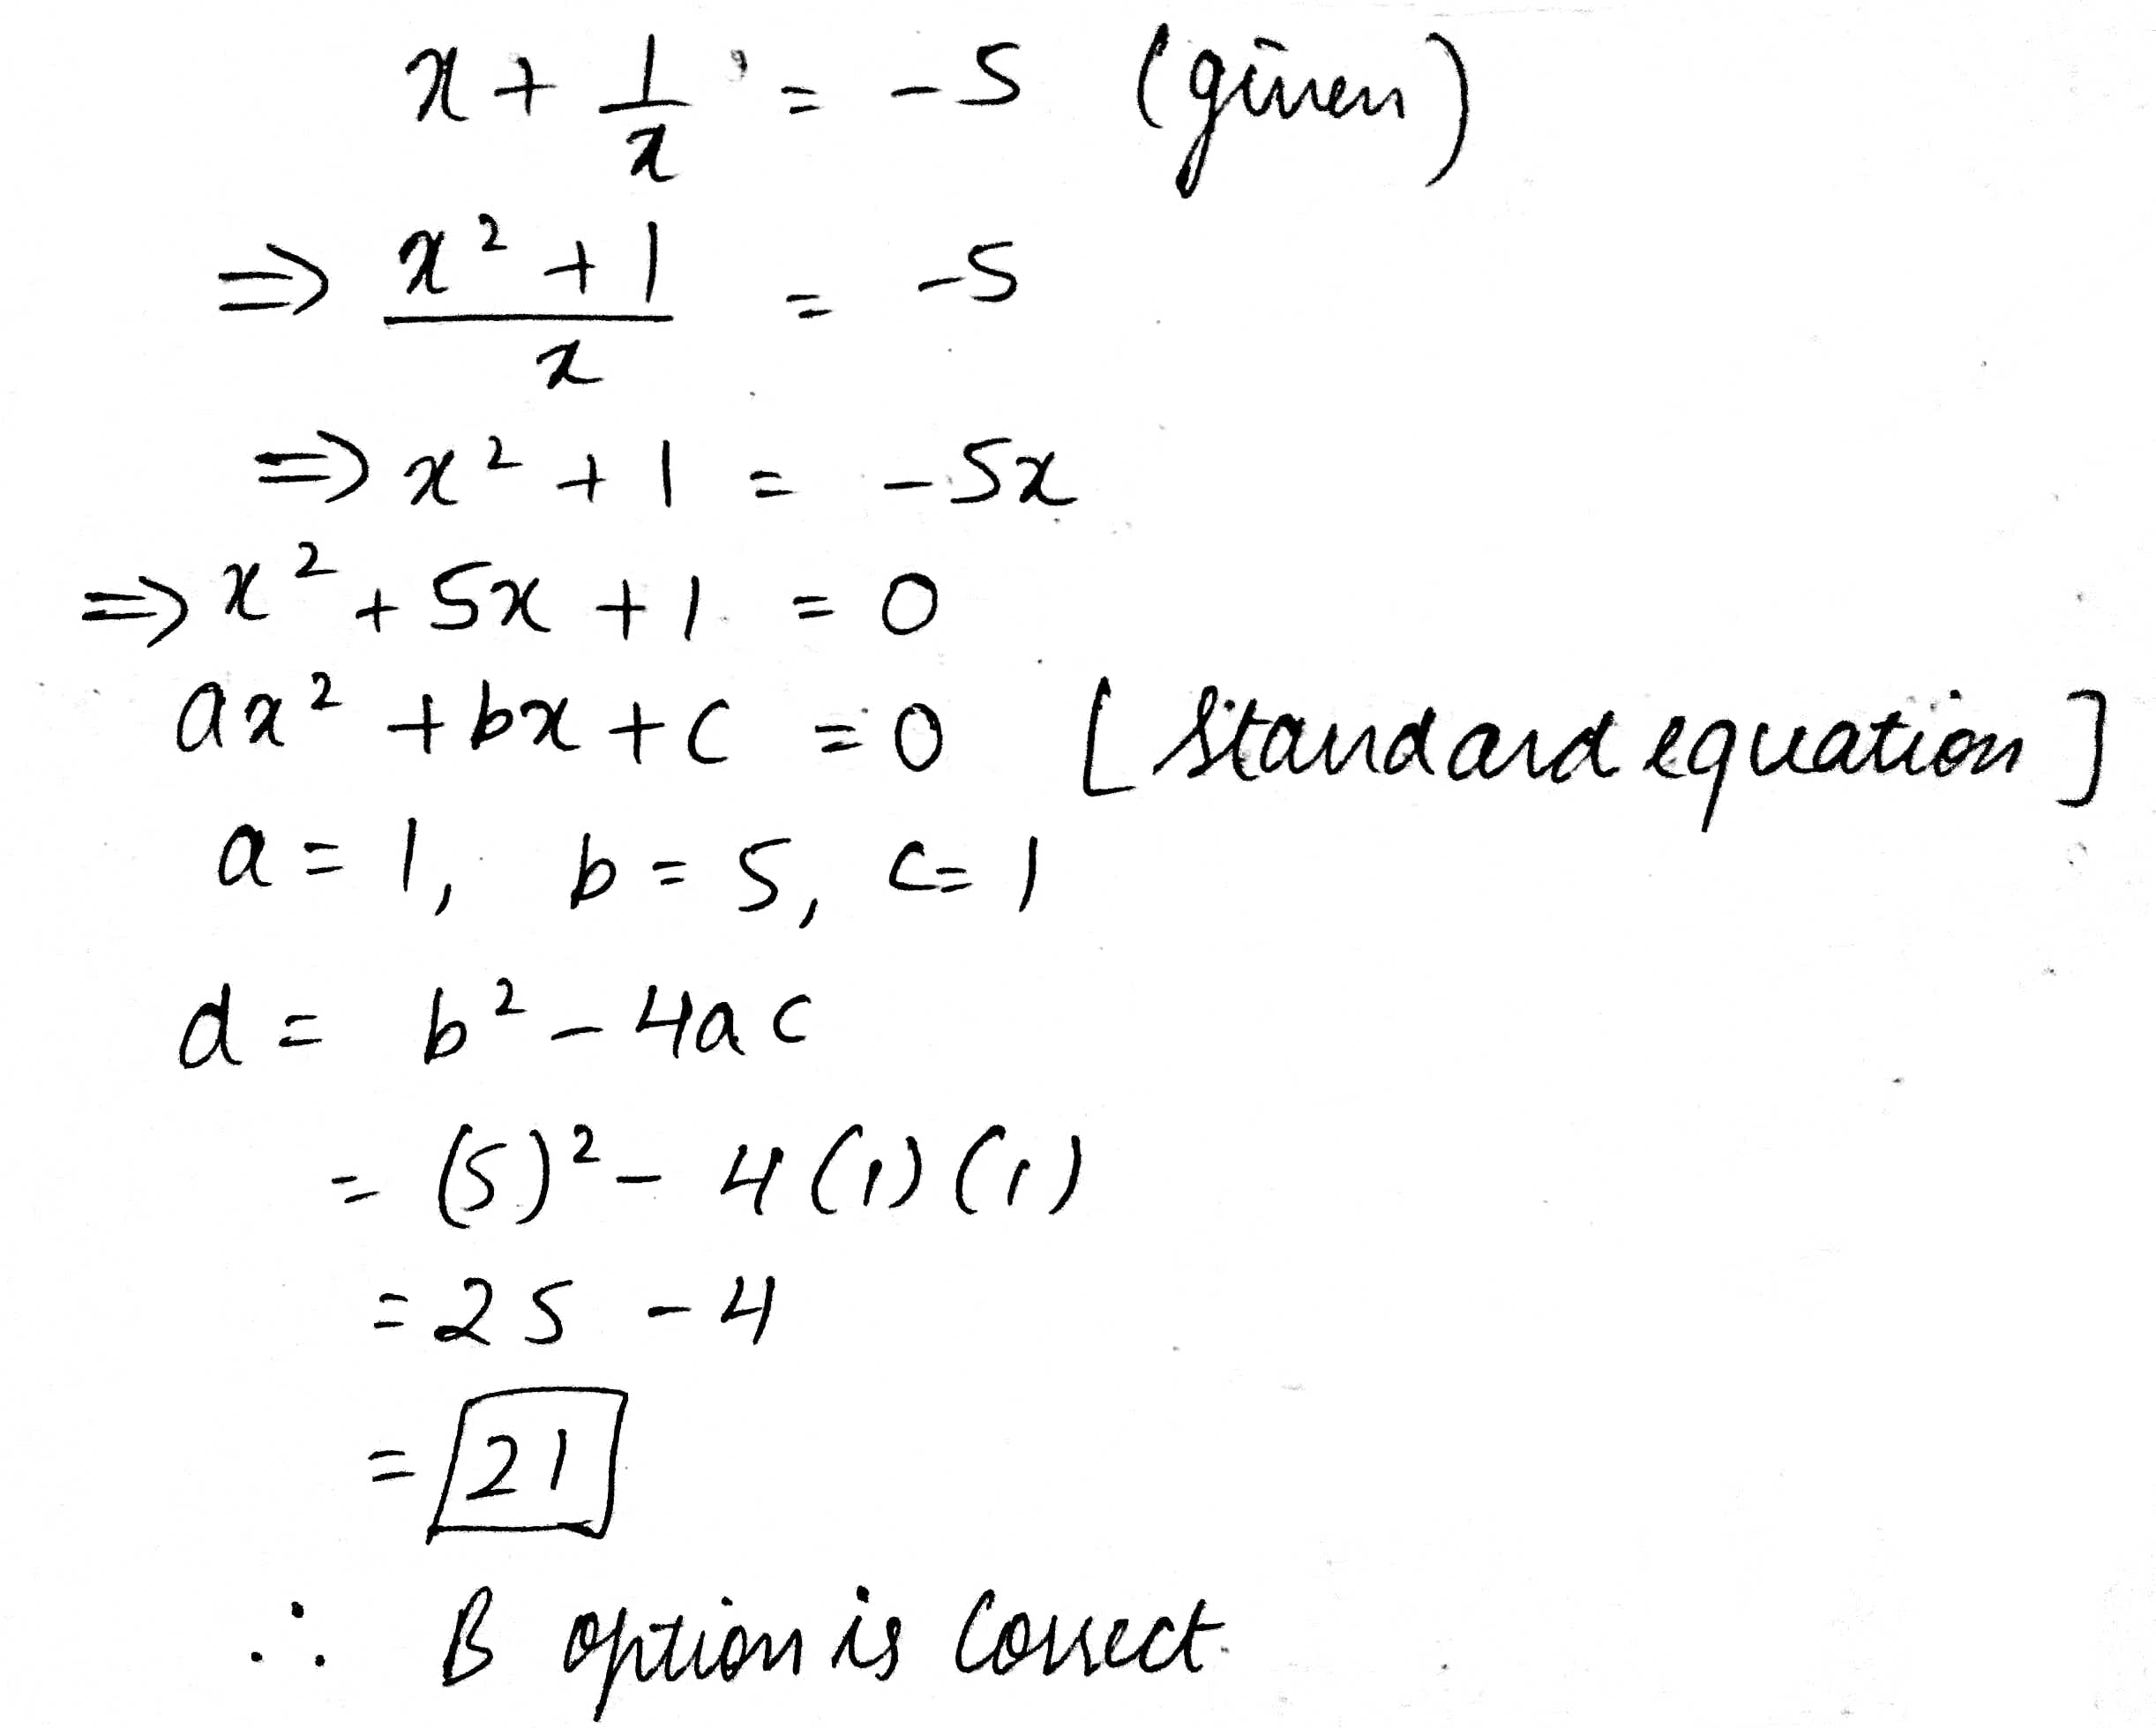 x + 1/x = -5 (given)
⇒ x² + 1 / x = -5
⇒ x² + 1 = -5x
⇒ x² + 5x + 1 = 0
ax² + bx + c = 0 [Standard equation]
a = 1, b = 5, c = 1
d = b² - 4ac
= (5)² - 4(1)(1)
= 25 - 4
= 21
∴ B option is Correct.